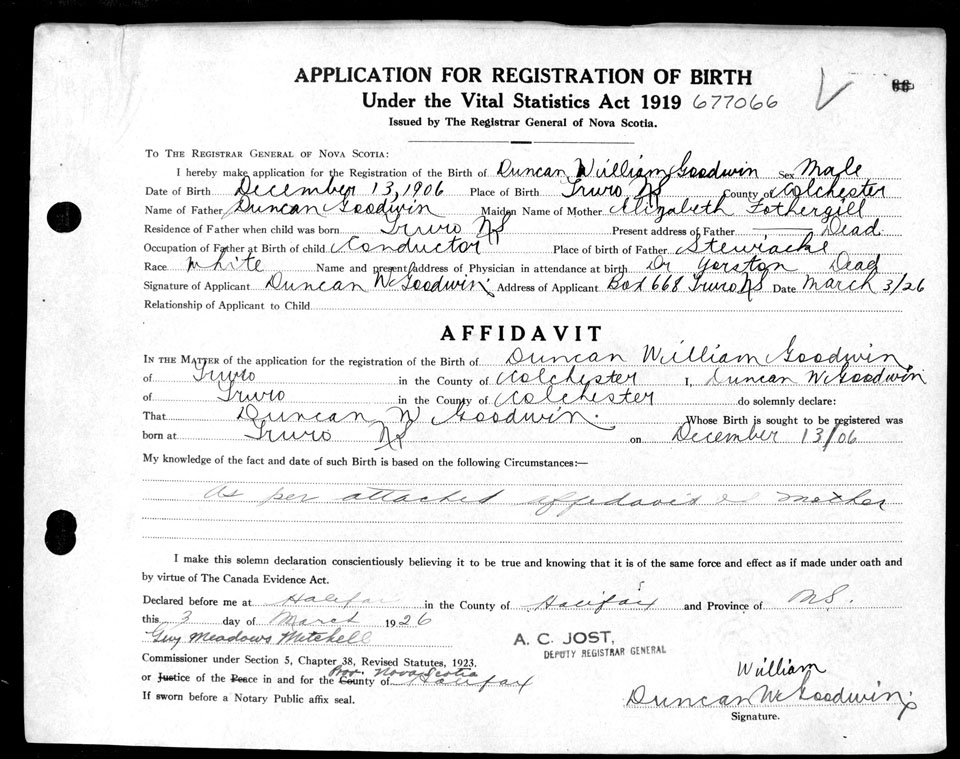 APPLICATION FOR REGISTRATION OF BIRTH
Under the Vital Statistics Act 1919 677066
Issued by The Registrar General of Nova Scotia.
TO THE REGISTRAR GENERAL OF NOVA SCOTIA:
I hereby make application for the Registration of the Birth of Duncan William Goodwin Sex Male
Date of Birth December 13, 1906 Place of Birth Truro NS County of Colchester
Name of Father Duncan Goodwin Maiden Name of Mother Elizabeth Fothergill
Residence of Father when child was born Truro NS Present address of Father Dead
Occupation of Father at Birth of child Conductor Place of birth of Father Stewiacke
Race White Name and present address of Physician in attendance at birth Dr Yorston Dead
Signature of Applicant Duncan W Goodwin Address of Applicant Box 668 Truro NS Date March 3/26
Relationship of Applicant to Child
AFFIDAVIT
IN THE MATTER of the application for the registration of the Birth of Duncan William Goodwin
of Truro in the County of Colchester I, Duncan W Goodwin
of Truro in the County of Colchester do solemnly declare:
That Duncan W Goodwin. Whose Birth is sought to be registered was
born at Truro NS on December 13/06
My knowledge of the fact and date of such Birth is based on the following Circumstances:—
As per attached affidavit of mother
I make this solemn declaration conscientiously believing it to be true and knowing that it is of the same force and effect as if made under oath and
by virtue of The Canada Evidence Act.
Declared before me at Halifax in the County of Halifax and Province of N.S.
this 3 day of March 1926
Guy Meadows Mitchell
A. C. JOST,
DEPUTY REGISTRAR GENERAL
Commissioner under Section 5, Chapter 38, Revised Statutes, 1923.
Prov. Nova Scotia
or Justice of the Peace in and for the County of Halifax
If sworn before a Notary Public affix seal.
William
Duncan W Goodwin.
Signature.